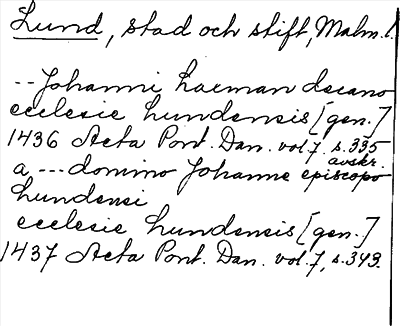 Lund, stad och stift, Malm. l.
-- Johanni Laeman decano
ecclesie Lundensis [gen.]
1436 Acta Pont. Dan. vol. 7 s. 335
avskr.
a --- domino Johanne episcopo
Lundensi
ecclesie Lundensis [gen.]
1437 Acta Pont. Dan. vol. 7, s. 343.